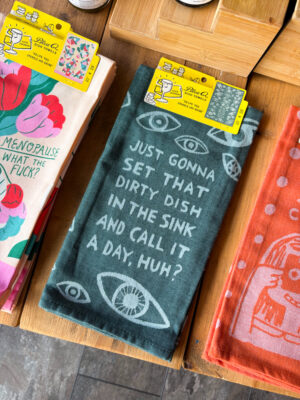 Blue Q.
DISH TOWELS
MENOPAUSE
WHAT THE
FUCK?
Blue Q.
DISH TOWELS
JUST GONNA
SET THAT
DIRTY DISH
IN THE SINK
AND CALL IT
A DAY, HUH?